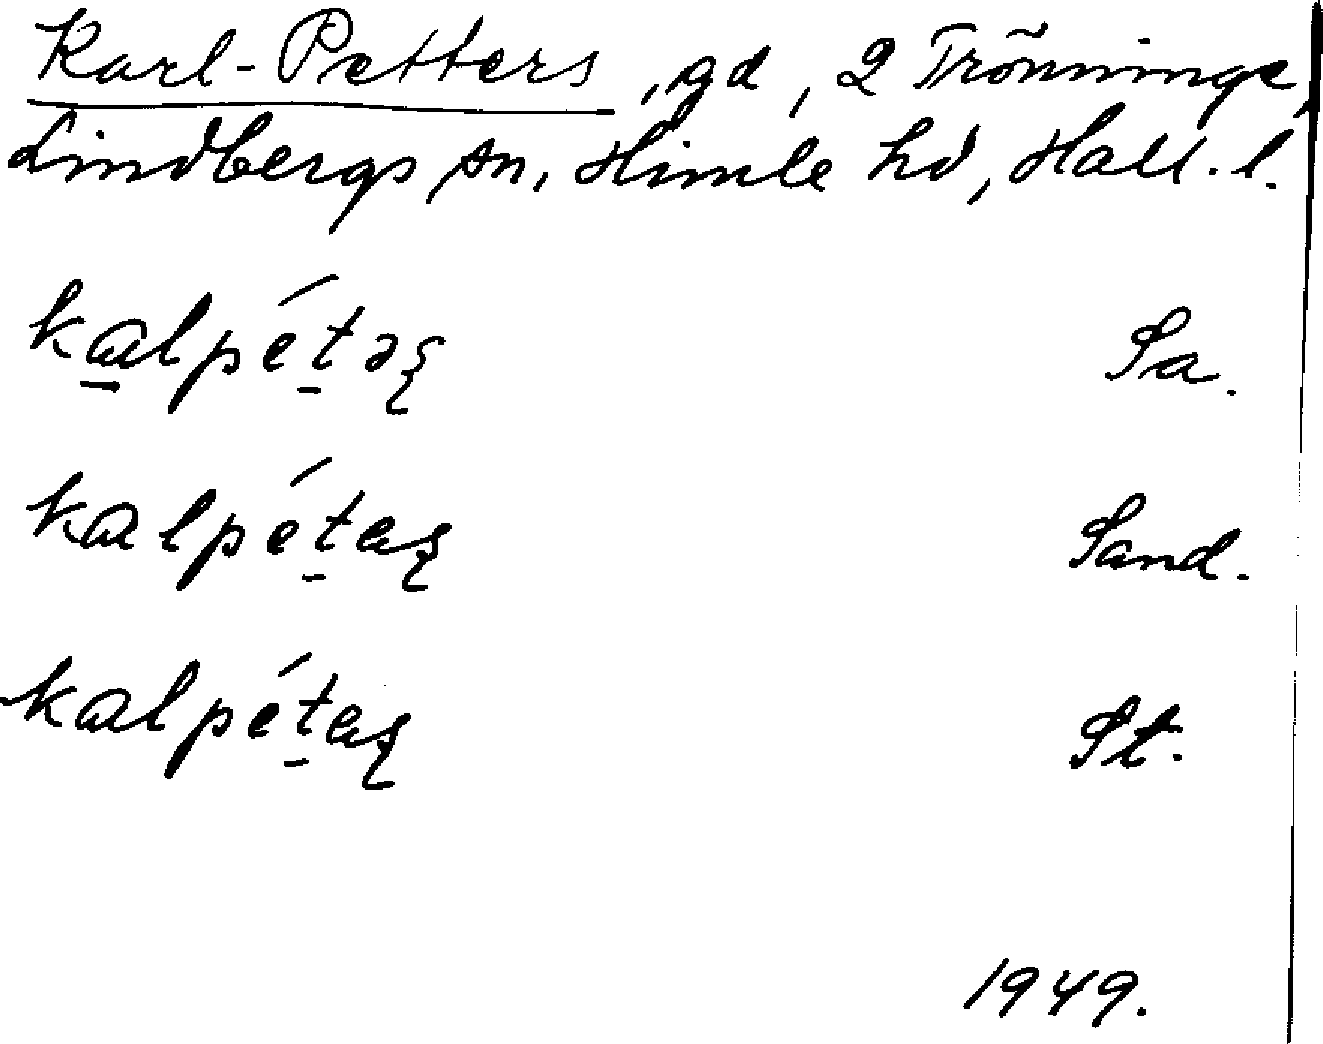 Karl-Petters, gd, 2 Trönninge,
Lindbergs sn, Himle hd, Hall. l.
ka̲lpét̲əʂ Sa.
kalpét̲aʂ Sand.
kalpét̲aʂ St.
1949.